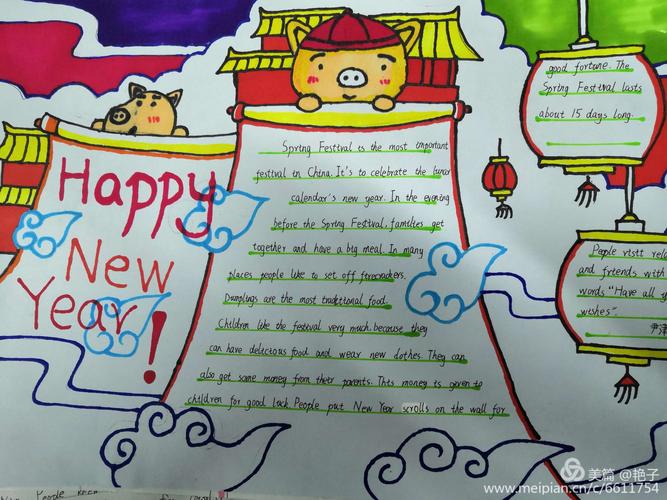 Happy
New
Year!
Spring Festival is the most important
festival in China. It's to celebrate the lunar
calendar's new year. In the evening
before the Spring Festival, families get
together and have a big meal. In many
places people like to set off firecrackers.
Dumplings are the most traditional food.
Children like the festival very much. because they
can have delicious food and wear new clothes. They can
also get some money from their parents. This money is given to
children for good luck People put New Year scrolls on the wall for
good fortune. The
Spring Festival lasts
about 15 days long.
People visit rel
and friends with
words "Have all t
wishes"
People
美篇 @艳子
www.meipian.cn/c/6611754